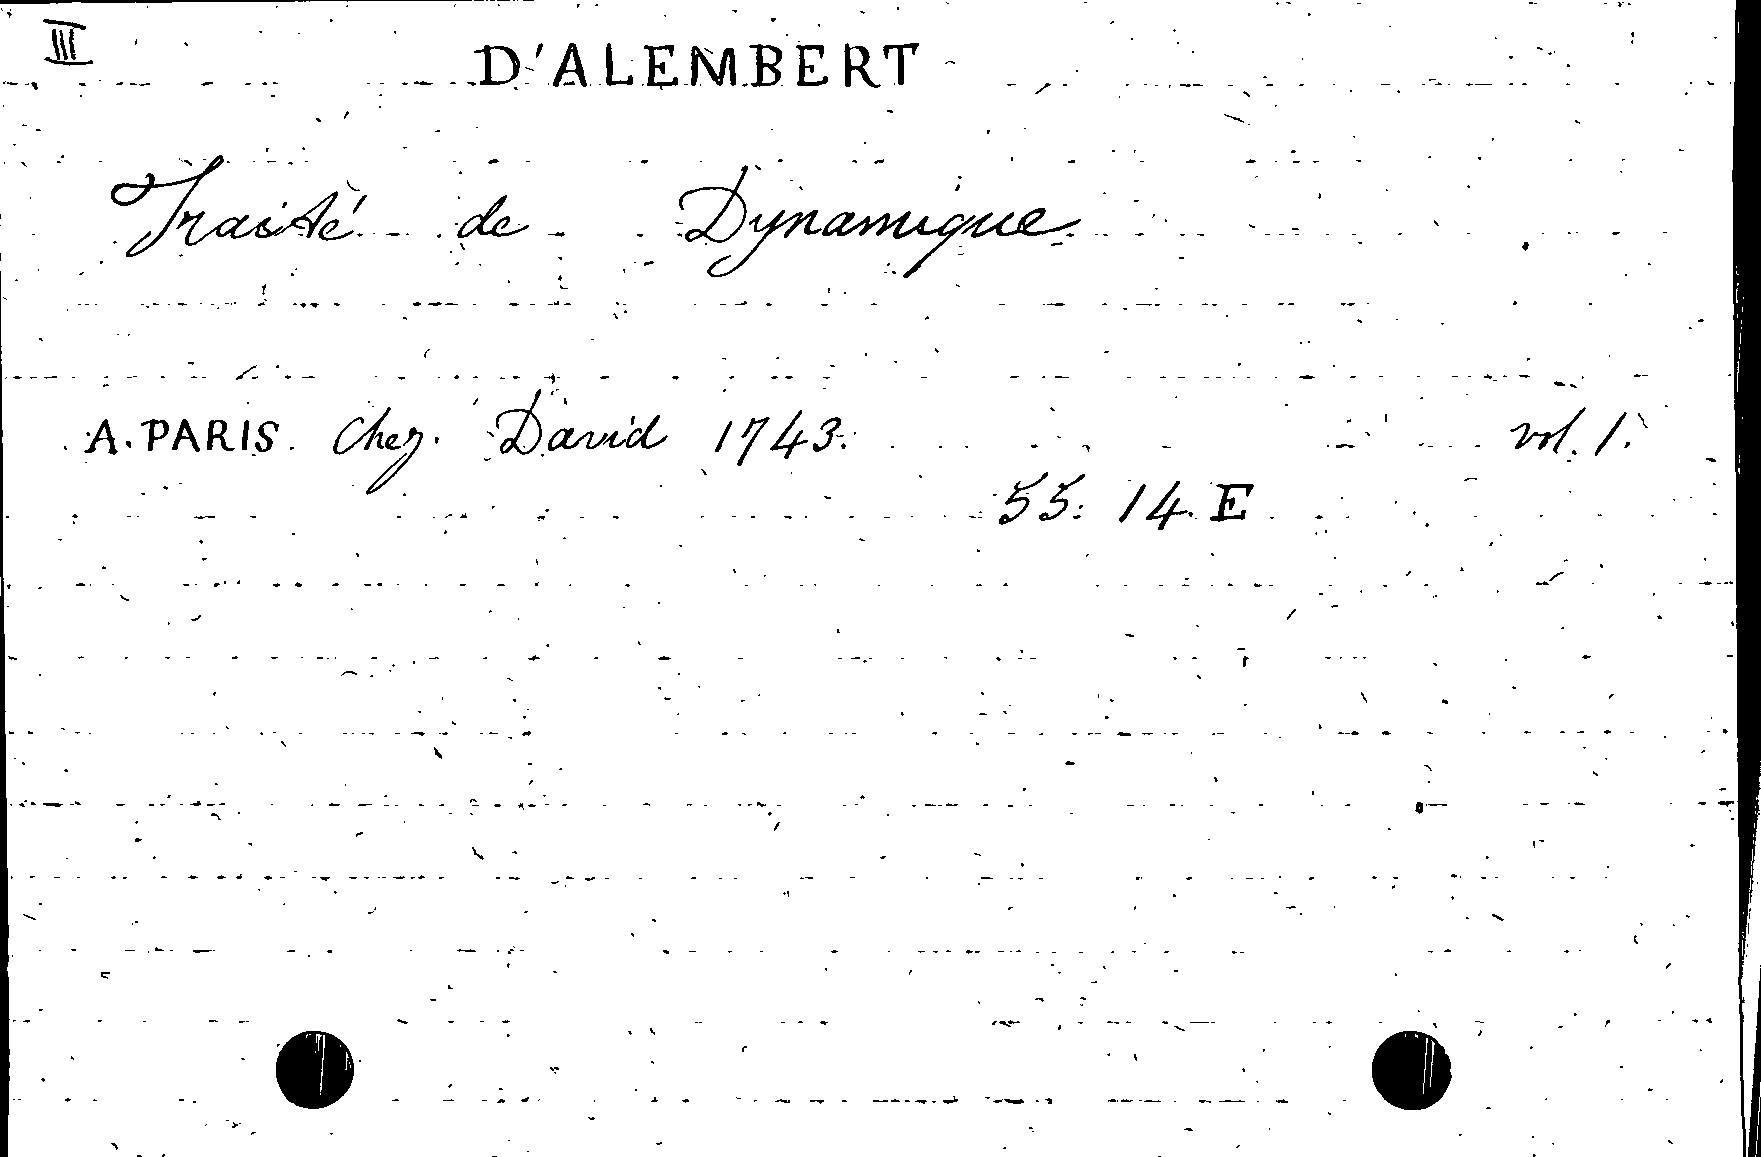 III
D'ALEMBERT
Traité de Dynamique
A. PARIS. Chez. David 1743. vol. 1.
55. 14. E